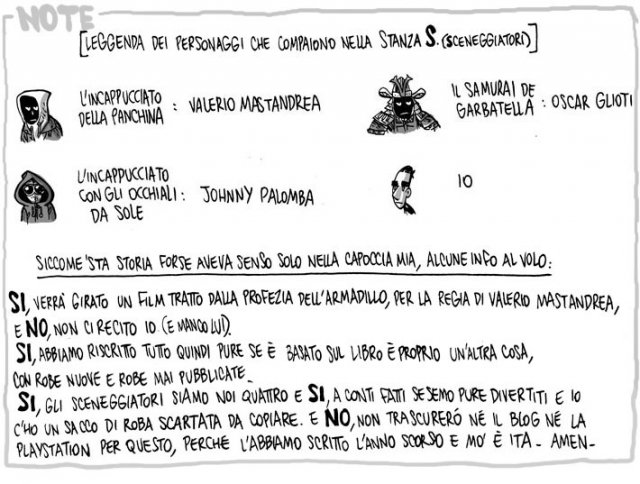 NOTE
[LEGGENDA DEI PERSONAGGI CHE COMPAIONO NELLA STANZA S. (SCENEGGIATORI)]
L'INCAPPUCCIATO
DELLA PANCHINA : VALERIO MASTANDREA
IL SAMURAI DE
GARBATELLA : OSCAR GLIOTI
L'INCAPPUCCIATO
CON GLI OCCHIALI : JOHNNY PALOMBA
DA SOLE
IO
SICCOME 'STA STORIA FORSE AVEVA SENSO SOLO NELLA CAPOCCIA MIA, ALCUNE INFO AL VOLO:
SI, VERRÀ GIRATO UN FILM TRATTO DALLA PROFEZIA DELL'ARMADILLO, PER LA REGIA DI VALERIO MASTANDREA,
E NO, NON CI RECITO IO (E MANCO LUI).
SI, ABBIAMO RISCRITTO TUTTO QUINDI PURE SE È BASATO SUL LIBRO È PROPRIO UN'ALTRA COSA,
CON ROBE NUOVE E ROBE MAI PUBBLICATE.
SI, GLI SCENEGGIATORI SIAMO NOI QUATTRO E SI, A CONTI FATTI SE SEMO PURE DIVERTITI E IO
C'HO UN SACCO DI ROBA SCARTATA DA COPIARE. E NO, NON TRASCURERÓ NÉ IL BLOG NÉ LA
PLAYSTATION PER QUESTO, PERCHÉ L'ABBIAMO SCRITTO L'ANNO SCORSO E MO' È ITA - AMEN -